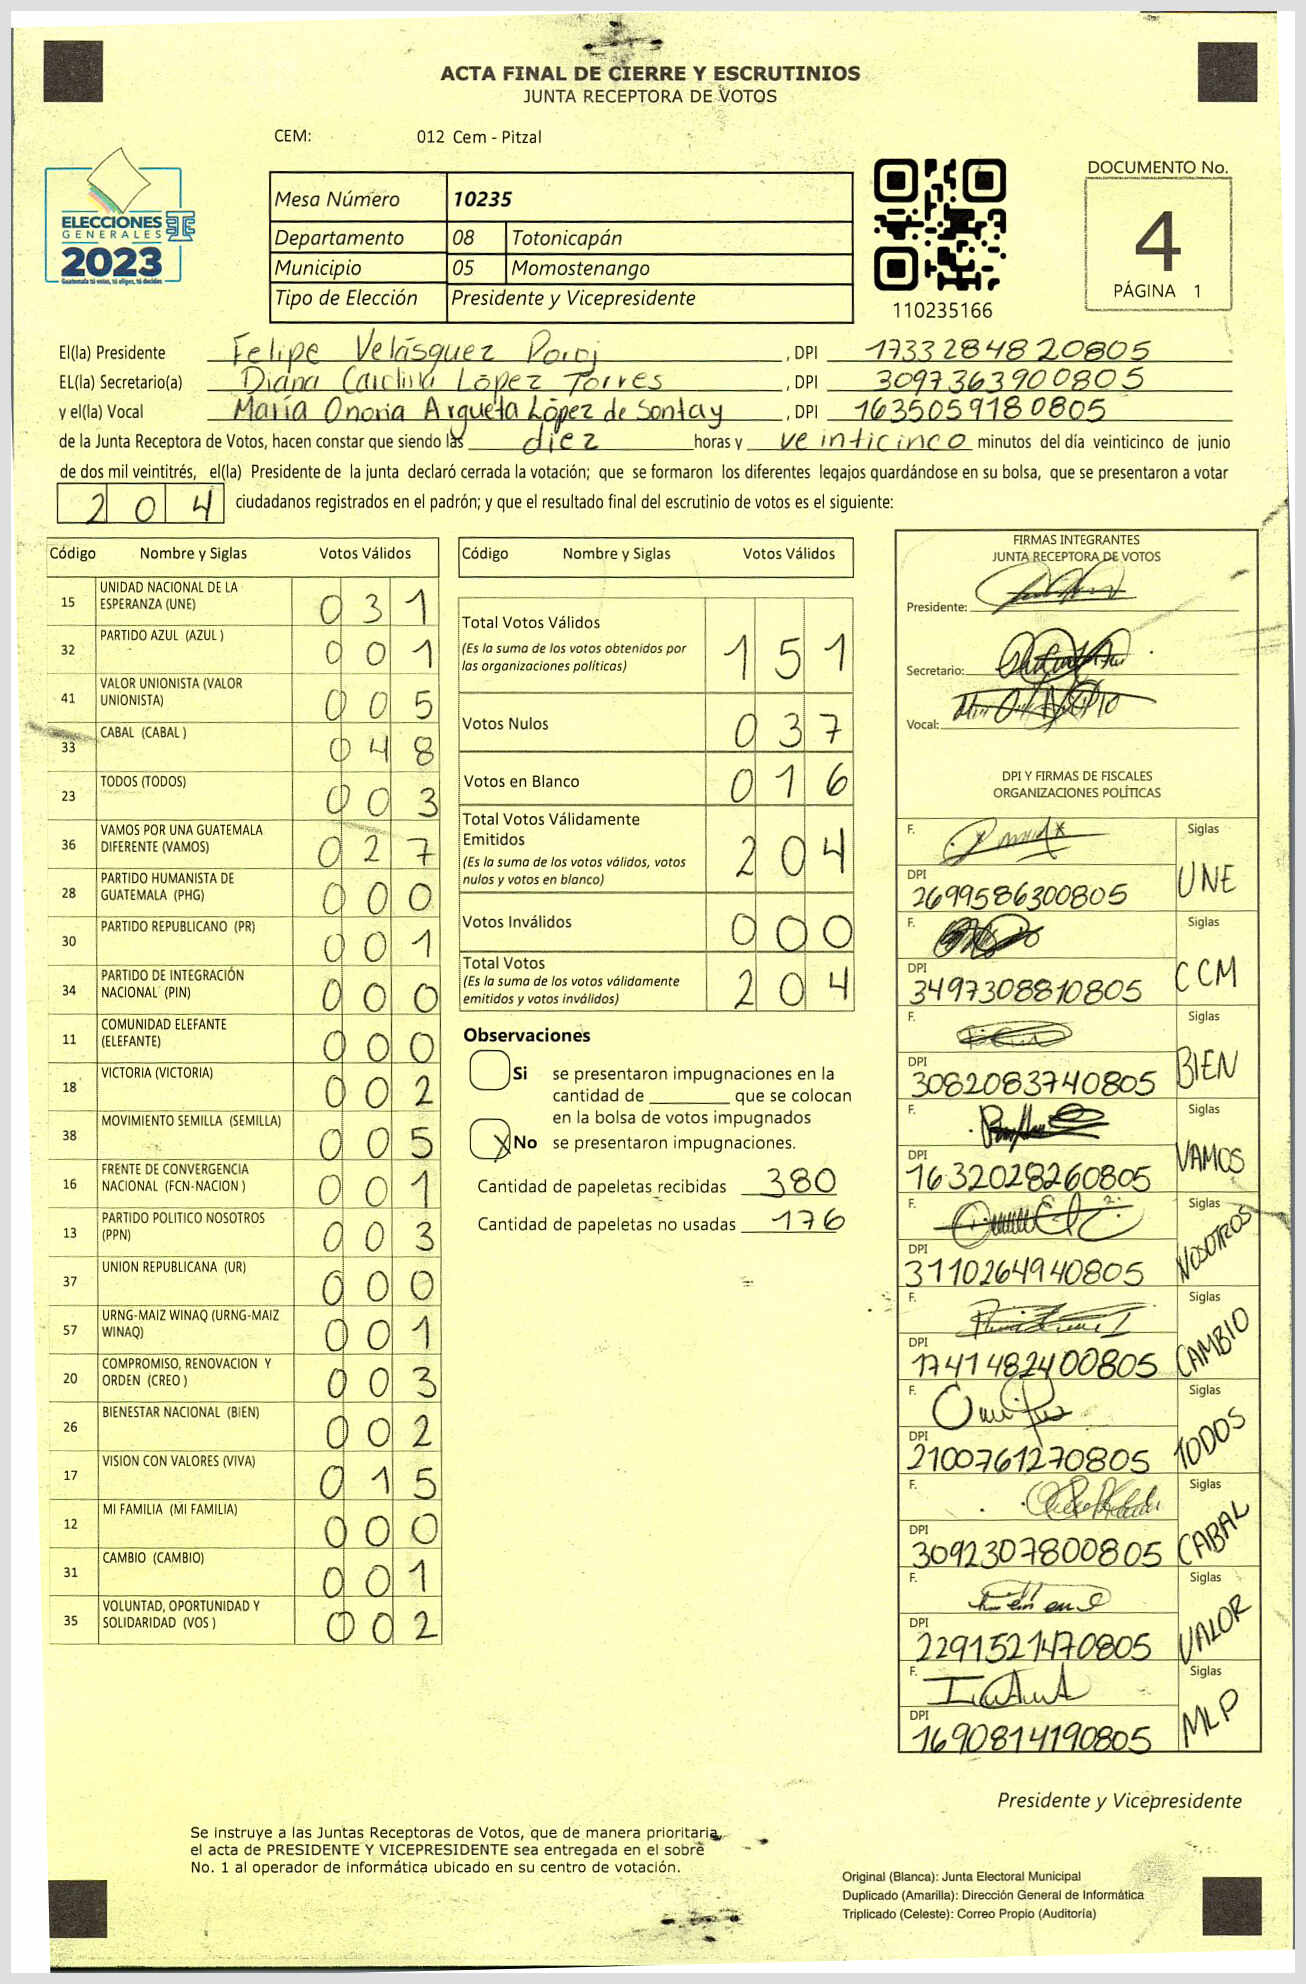 ACTA FINAL DE CIERRE Y ESCRUTINIOS
JUNTA RECEPTORA DE VOTOS
CEM: 012 Cem - Pitzal
ELECCIONES
GENERALES
2023
Guatemala tú votas, tú eliges, tú decides
Mesa Número 10235
Departamento 08 Totonicapán
Municipio 05 Momostenango
Tipo de Elección Presidente y Vicepresidente
110235166
DOCUMENTO No.
4
PÁGINA 1
El(la) Presidente Felipe Velásquez , DPI 1733284820805
EL(la) Secretario(a) Diana Carolina López Torres , DPI 3097363900805
y el(la) Vocal María Onoria Argueta López de Sontay , DPI 1635059180805
de la Junta Receptora de Votos, hacen constar que siendo las diez horas y veinticinco minutos del día veinticinco de junio
de dos mil veintitrés, el(la) Presidente de la junta declaró cerrada la votación; que se formaron los diferentes legajos quardándose en su bolsa, que se presentaron a votar
204 ciudadanos registrados en el padrón; y que el resultado final del escrutinio de votos es el siguiente:
Código Nombre y Siglas Votos Válidos
15 UNIDAD NACIONAL DE LA ESPERANZA (UNE) 031
32 PARTIDO AZUL (AZUL ) 001
41 VALOR UNIONISTA (VALOR UNIONISTA) 005
33 CABAL (CABAL ) 048
23 TODOS (TODOS) 003
36 VAMOS POR UNA GUATEMALA DIFERENTE (VAMOS) 027
28 PARTIDO HUMANISTA DE GUATEMALA (PHG) 000
30 PARTIDO REPUBLICANO (PR) 001
34 PARTIDO DE INTEGRACIÓN NACIONAL (PIN) 000
11 COMUNIDAD ELEFANTE (ELEFANTE) 000
18 VICTORIA (VICTORIA) 002
38 MOVIMIENTO SEMILLA (SEMILLA) 005
16 FRENTE DE CONVERGENCIA NACIONAL (FCN-NACION ) 001
13 PARTIDO POLITICO NOSOTROS (PPN) 003
37 UNION REPUBLICANA (UR) 000
57 URNG-MAIZ WINAQ (URNG-MAIZ WINAQ) 001
20 COMPROMISO, RENOVACION Y ORDEN (CREO ) 003
26 BIENESTAR NACIONAL (BIEN) 002
17 VISION CON VALORES (VIVA) 015
12 MI FAMILIA (MI FAMILIA) 000
31 CAMBIO (CAMBIO) 001
35 VOLUNTAD, OPORTUNIDAD Y SOLIDARIDAD (VOS ) 002
Código Nombre y Siglas Votos Válidos
Total Votos Válidos 151
(Es la suma de los votos obtenidos por
las organizaciones políticas)
Votos Nulos 037
Votos en Blanco 016
Total Votos Válidamente
Emitidos 204
(Es la suma de los votos válidos, votos
nulos y votos en blanco)
Votos Inválidos 000
Total Votos 204
(Es la suma de los votos válidamente
emitidos y votos inválidos)
Observaciones
Si se presentaron impugnaciones en la
cantidad de ________ que se colocan
en la bolsa de votos impugnados
X No se presentaron impugnaciones.
Cantidad de papeletas recibidas 380
Cantidad de papeletas no usadas 176
FIRMAS INTEGRANTES
JUNTA RECEPTORA DE VOTOS
Presidente:
Secretario:
Vocal:
DPI Y FIRMAS DE FISCALES
ORGANIZACIONES POLÍTICAS
F. Siglas
DPI 2699586300805 UNE
F. Siglas
DPI 3497308810805 CCM
F. Siglas
DPI 3082083740805 BIEN
F. Siglas
DPI 1632028260805 VAMOS
F. Siglas
DPI 3110264940805 NOSOTROS
F. Siglas
DPI 1741482400805 CAMBIO
F. Siglas
DPI 2100761270805 TODOS
F. Siglas
DPI 3092307800805 CABAL
F. Siglas
DPI 2291521470805 VALOR
F. Siglas
DPI 1690814190805 MLP
Presidente y Vicepresidente
Se instruye a las Juntas Receptoras de Votos, que de manera prioritaria,
el acta de PRESIDENTE Y VICEPRESIDENTE sea entregada en el sobre
No. 1 al operador de informática ubicado en su centro de votación.
Original (Blanca): Junta Electoral Municipal
Duplicado (Amarilla): Dirección General de Informática
Triplicado (Celeste): Correo Propio (Auditoría)